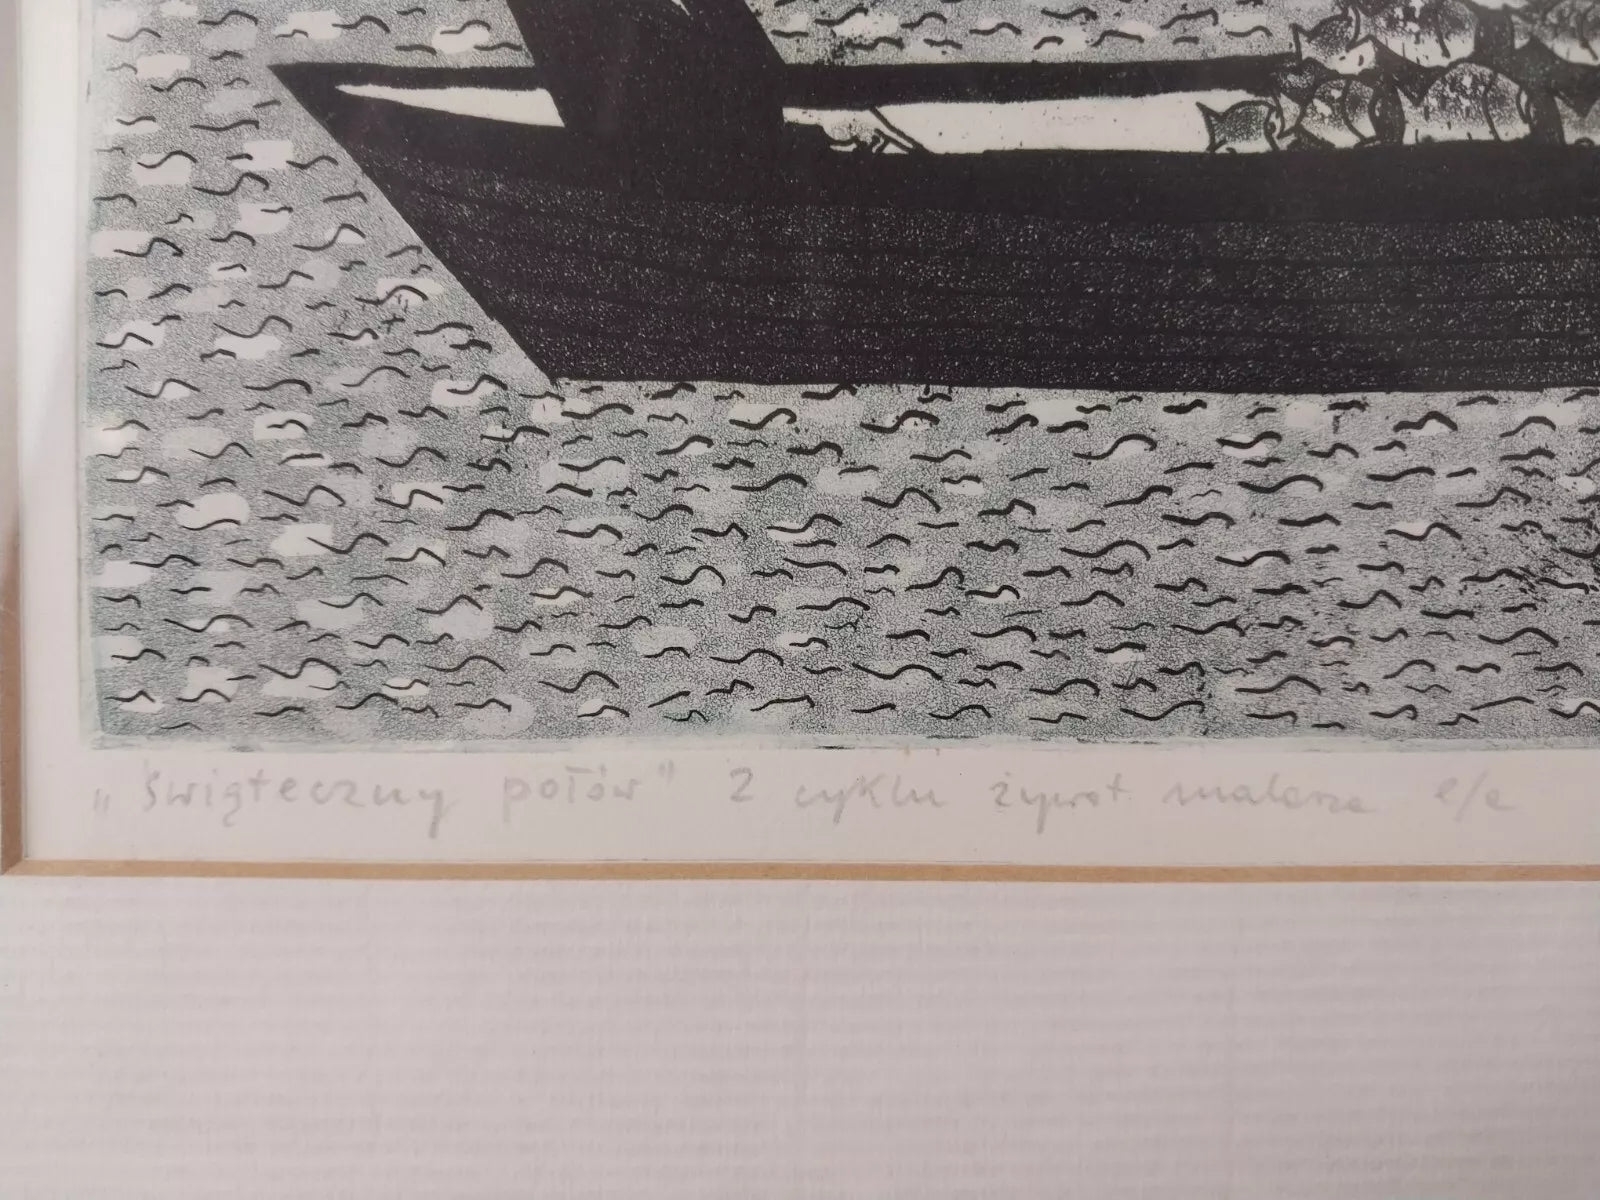 "Świąteczny połów" z cyklu żywot malarza e/a